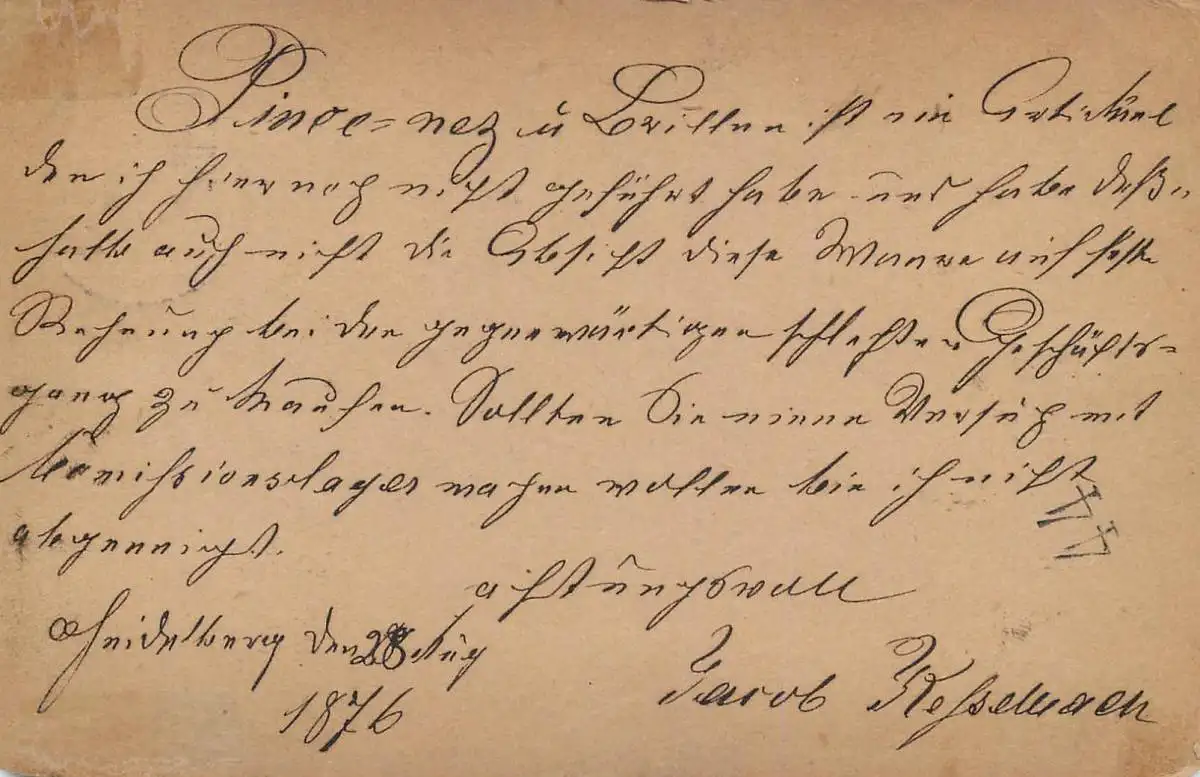 Pince-nez u Brillen ist ein Artickel
den ich hier noch nicht geführt habe und habe deß-
halb auch nicht die Absicht diese Waare auf feste
Rechnung bei den gegenwärtigen schlechten Geschäfts-
gang zu kaufen. Sollten Sie einen Versuch mit
Comissionslager machen wollen bin ich nicht
abgeneigt.
achtungsvoll
Heidelberg den 28 Aug
1876
Jacob